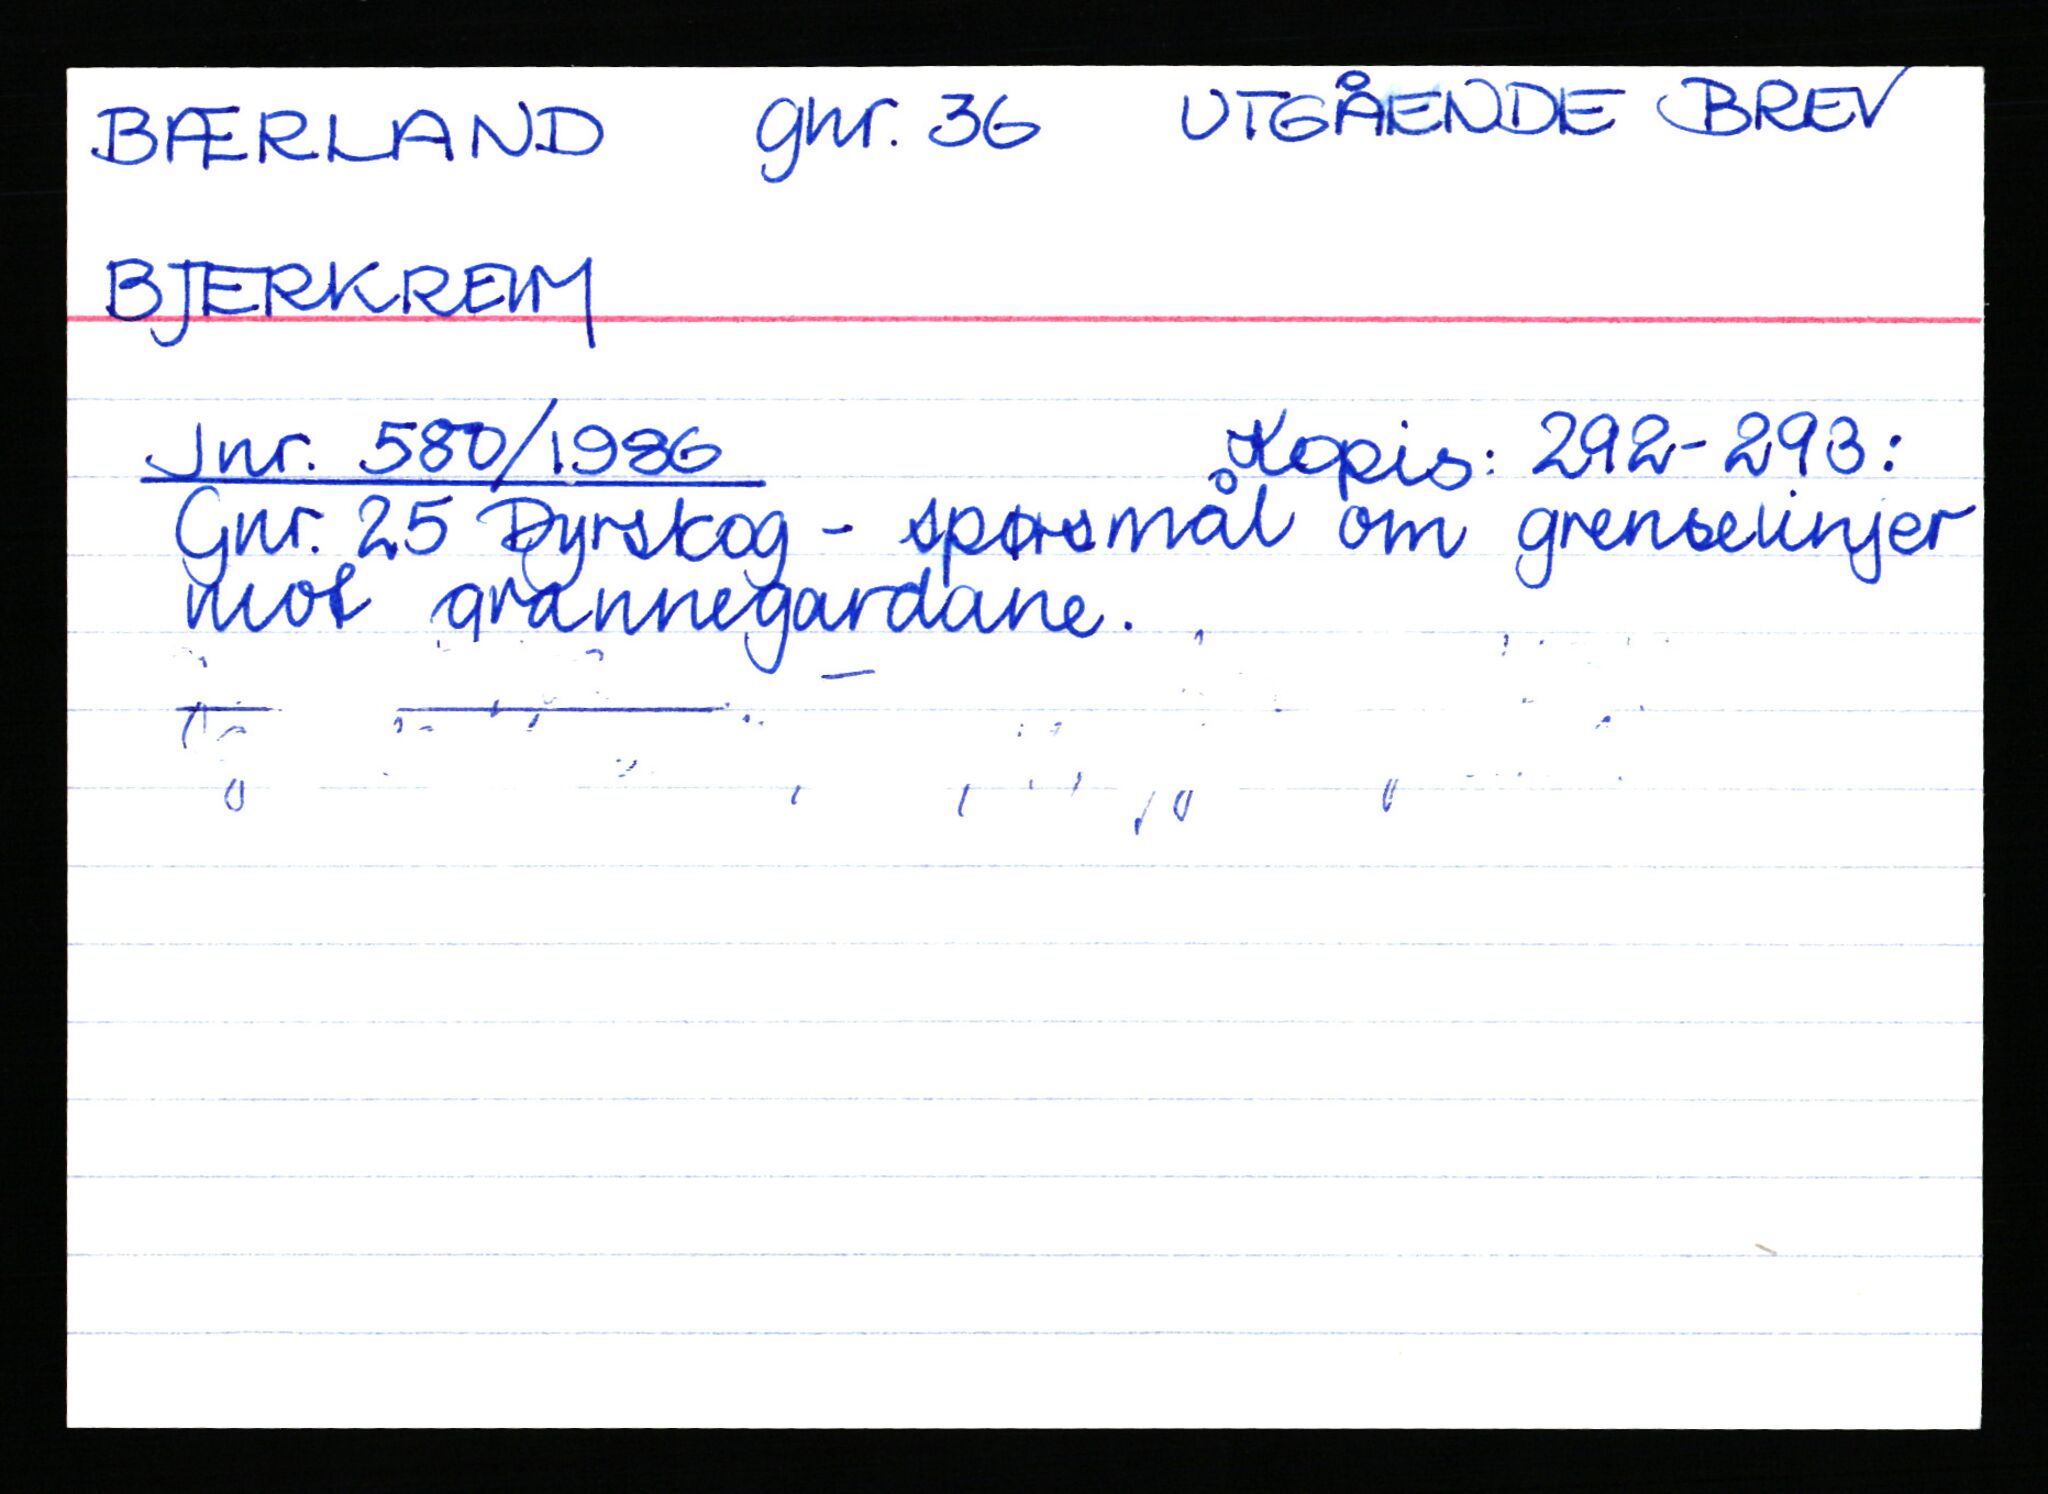 BÆRLAND gnr. 36 UTGÅENDE BREV
BJERKREIM
Jnr. 580/1986 Kopis: 292-293:
Gnr. 25 Dyrskog - spørsmål om grenselinjer
mot grannegardane.